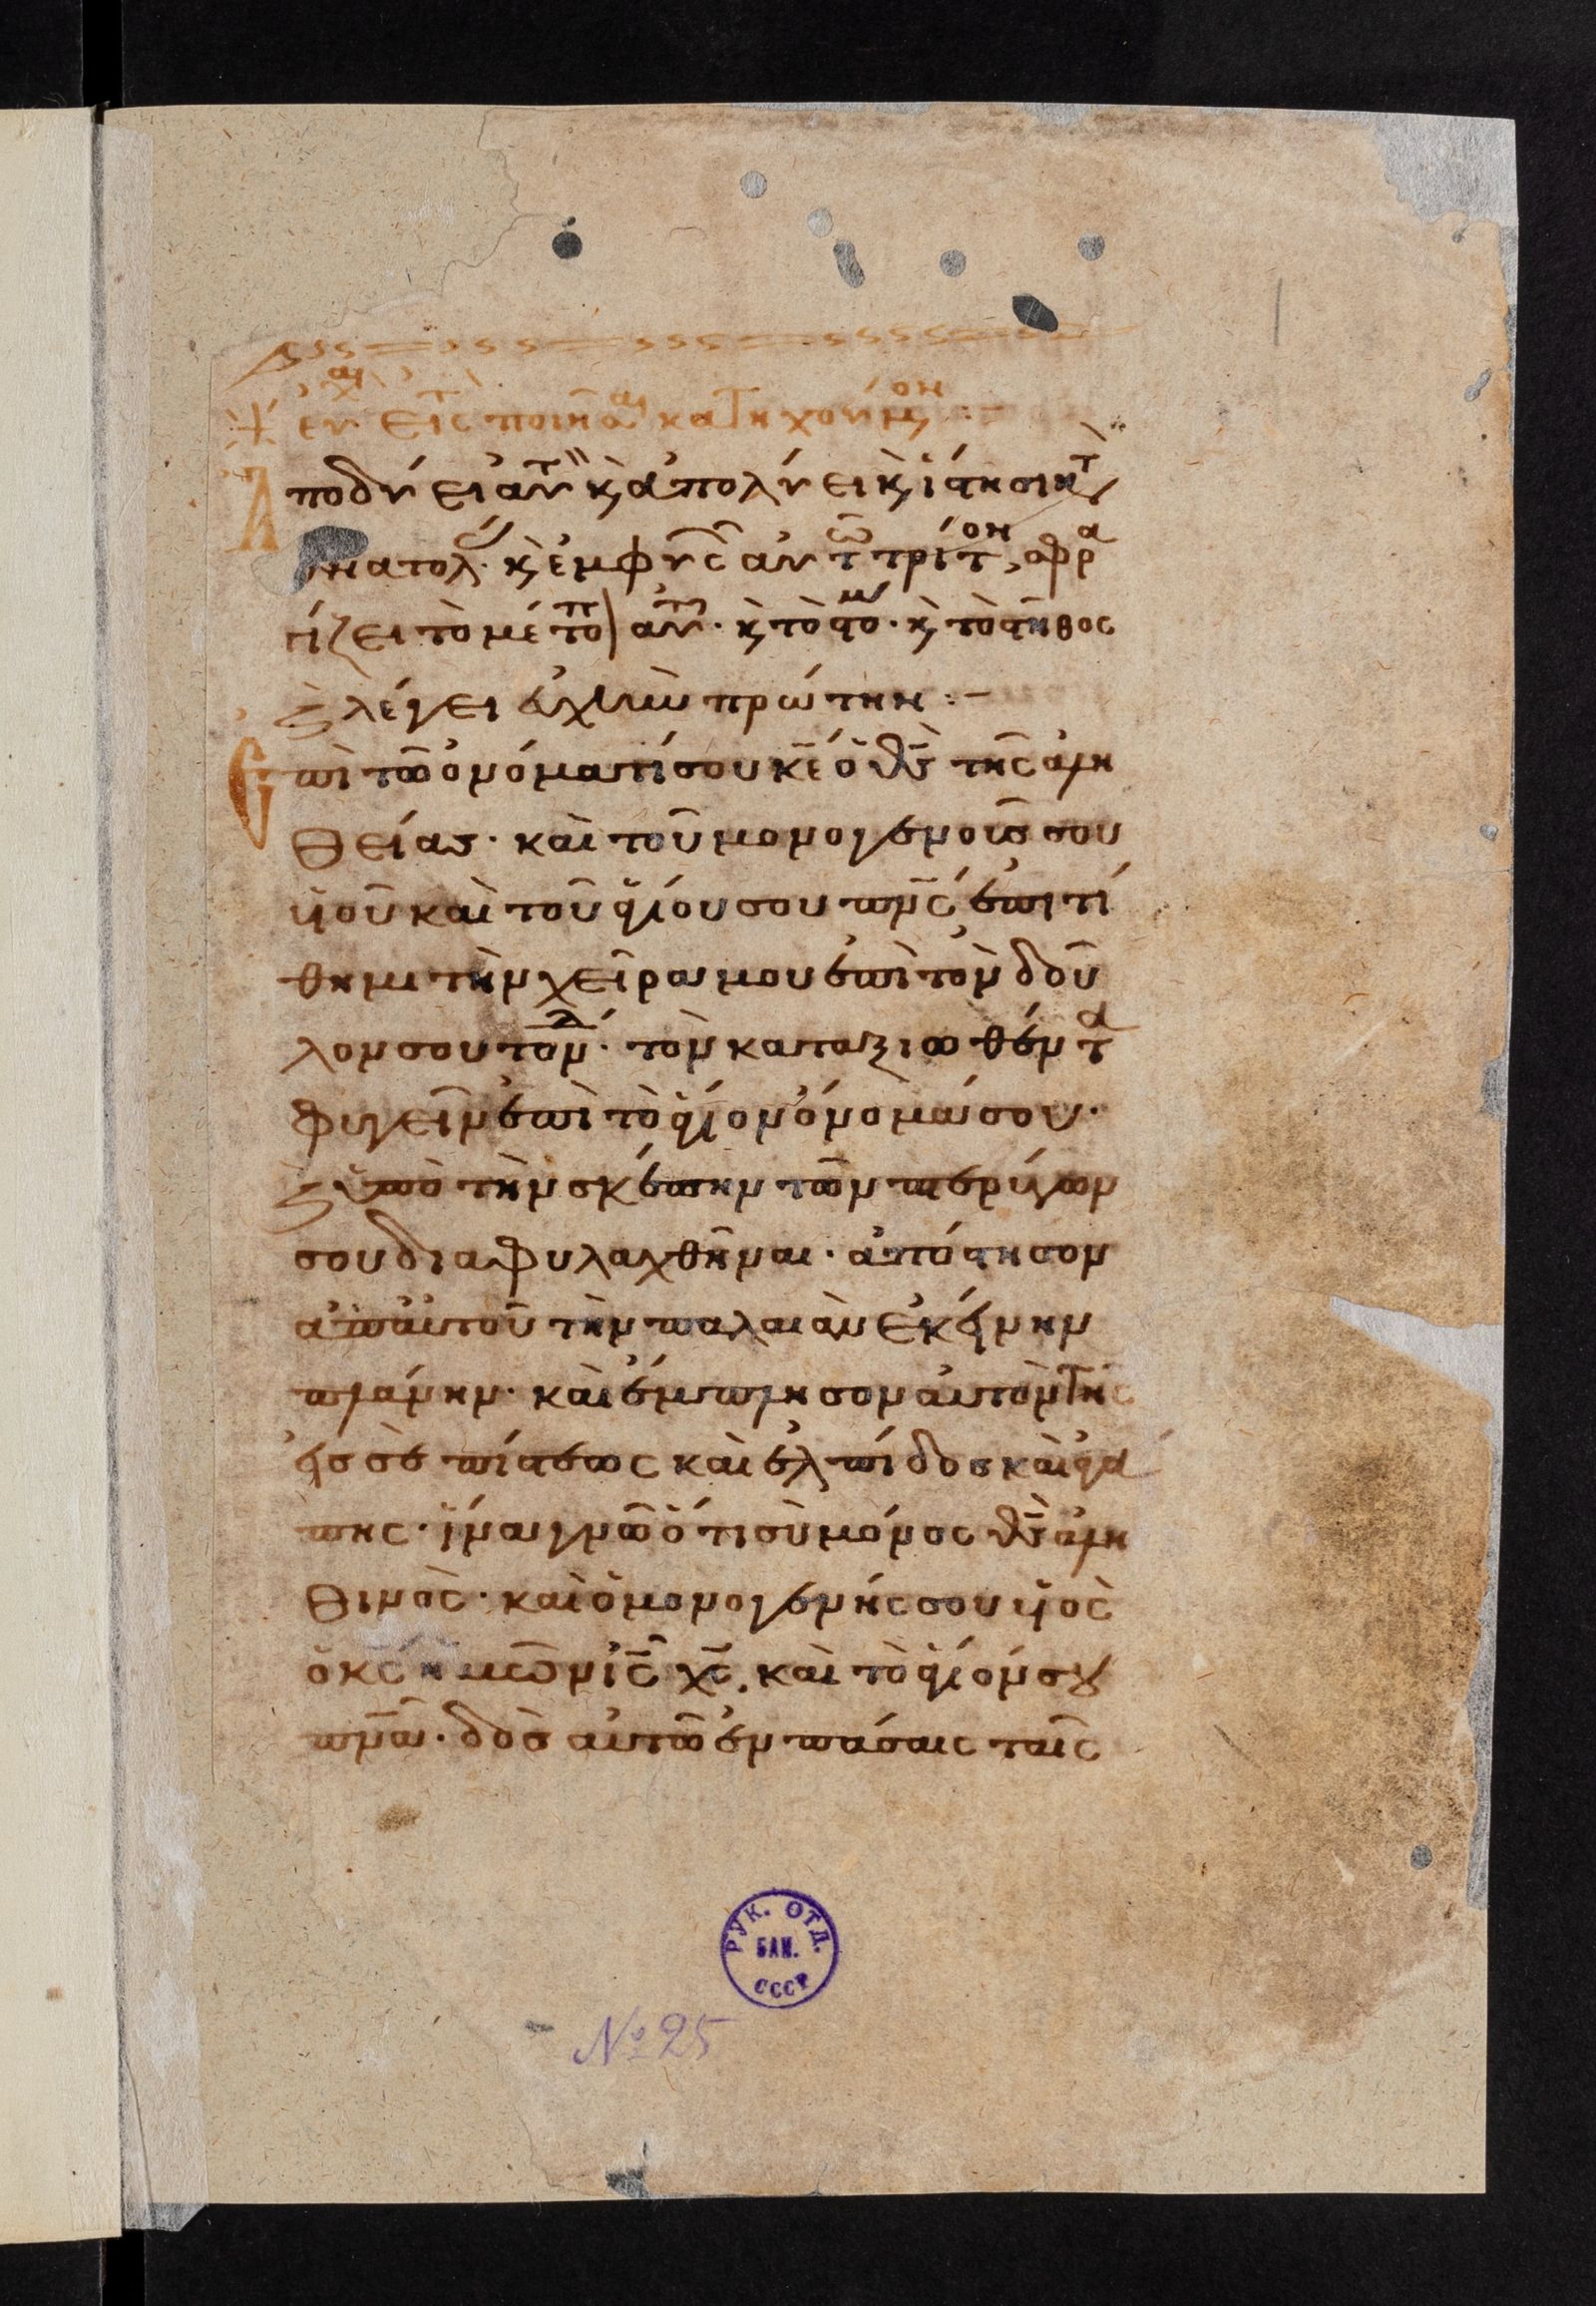 εὐχ(αι) εἰς τ(ο) ποιῆσαι κατηχούμ(εν)ον :–
Ἀποδύει αὐτ(ὸν) κ(αὶ) ἀπολύει κ(αὶ) ἵστησι κ(α)τ(ὰ)
ἀνατολ(ὰς) κ(αὶ) ἐμφυσᾷ αὐτῶ τρίτον, σφρα
γίζει τὸ μέτωπο(ν) αὐτ(οῦ) · κ(αὶ) τὸ στόμ(α) · κ(αὶ) τὸ στῆθος
κ(αὶ) λέγει εὐχὴν πρώτην :–
Ἐπὶ τῶ ὀνόματί σου κ̅ε̅ ὁ θ̅ς̅ τῆς ἀλη
θείας · καὶ τοῦ μονογενοῦς σου
υἱοῦ καὶ τοῦ ἁγίου σου π̅ν̅ς̅ ἐπιτί
θημι τὴν χεῖρα μου ἐπὶ τὸν δοῦ
λον σου τὸν δ · τὸν καταξιωθέντα
φυγεῖν ἐπὶ τὸ ἅγιον ὄνομά σου ·
κ(αὶ) ὑπὸ τὴν σκέπην τῶν πτερύγων
σου διαφυλαχθῆναι · ἀπόστησον
ἀπ' αὐτοῦ τὴν παλαιὰν ἐκείνην
πλάνην · καὶ ἔμπλησον αὐτὸν τῆς
εἰς σὲ πίστεως καὶ ἐλπίδος καὶ ἀγά
πης · ἵνα γνῶ ὅτι σὺ μόνος θ̅ς̅ ἀλη
θινὸς · καὶ ὁ μονογενής σου υἱὸς
ὁ κ̅ς̅ ἡμῶν ι̅ς̅ χ̅ς̅. καὶ τὸ ἅγιόν σου
π̅ν̅α̅ · δὸς αὐτῶ ἐν πάσαις ταῖς
РУК. ОТД.
БАН.
СССР
№ 25